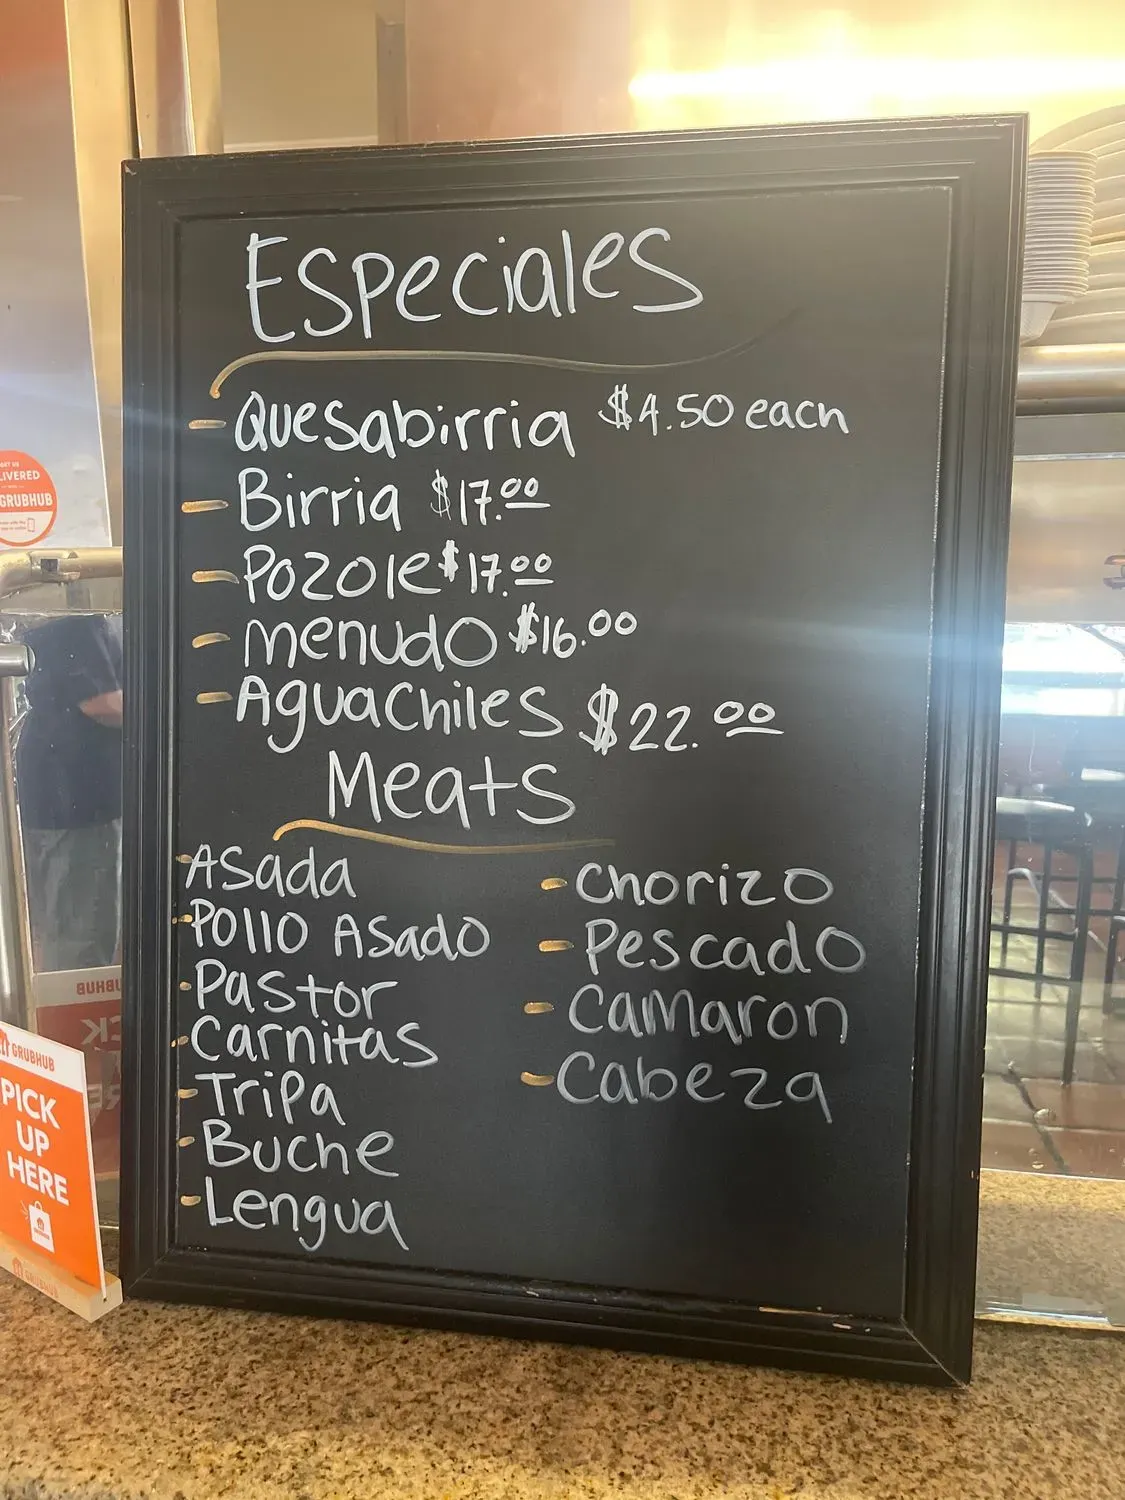 Especiales
- Quesabirria $4.50 each
- Birria $17.00
- Pozole $17.00
- menudo $16.00
- Aguachiles $22.00
Meats
- Asada
- Pollo Asado
- Pastor
- Carnitas
- Tripa
- Buche
- Lengua
- Chorizo
- Pescado
- Camaron
- Cabeza
LIVERED
GRUBHUB
GRUBHUB
PICK
UP
HERE
GRUBHUB